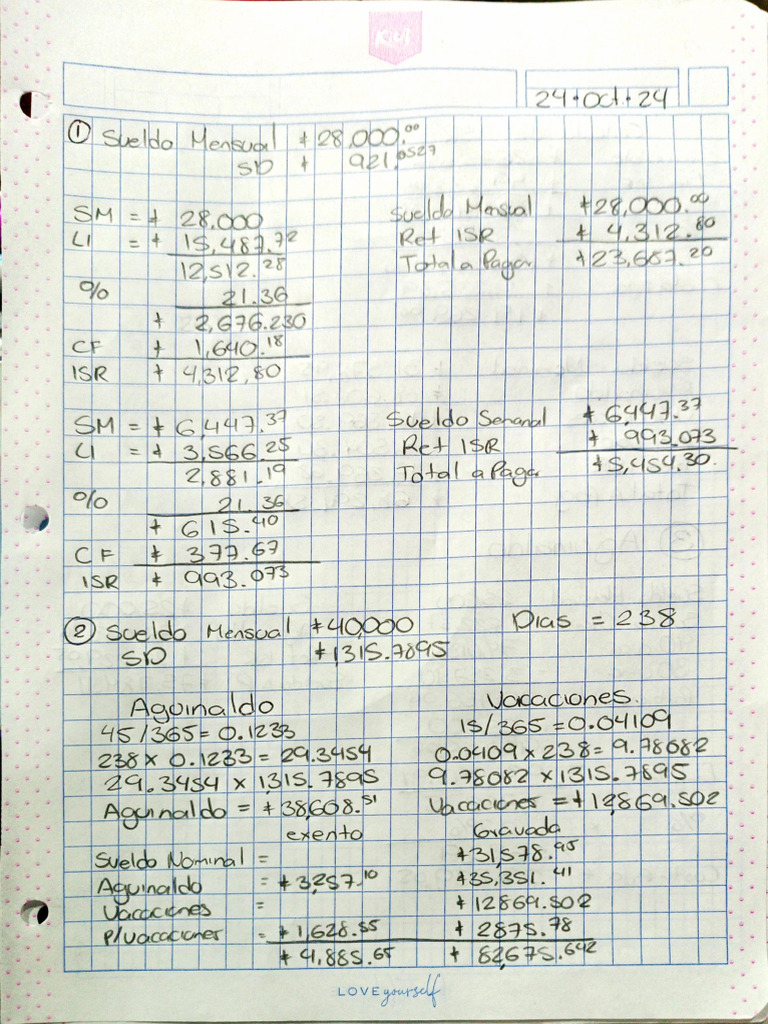 Kiut
24+Oct+24
① Sueldo Mensual $28,000.00
SD $ 921.0527
SM = $ 28,000
LI = $ 15,487.72
12,512.28
% 21.36
$ 2,676.230
CF $ 1,640.18
ISR $ 4,312,80
Sueldo Mensual $28,000.00
Ret ISR $ 4,312.80
Total a Pagar $23,687.20
SM = $ 6,447.37
LI = $ 3,566.25
2,881.19
% 21.36
$ 615.40
CF $ 377.67
ISR $ 993.073
Sueldo Semanal $ 6,447.37
Ret ISR $ 993.073
Total a Pagar $5,454.30.
② Sueldo Mensual $40,000 Dias = 238
SD $1315.7895
Aguinaldo
45/365=0.1233
238 x 0.1233 = 29.3454
29.3454 x 1315.7895
Aguinaldo = $38,608.51
Vacaciones.
15/365=0.04109
0.0409 x 238= 9.78082
9.78082 x 1315.7895
Vacaciones = $12,869.502
exento Gravada
Sueldo Nominal = $31,578.95
Aguinaldo = $3,257.10 $35,351.41
Vacaciones = $12869.502
P/Vacaciones = $1,628.55 $ 2875.78
$4,885.65 $ 82,675.642
LOVE yourself